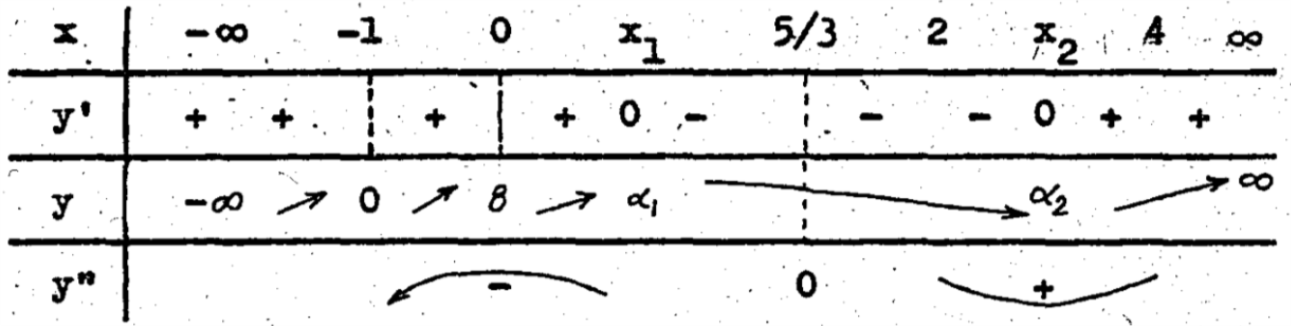 x -∞ -1 0 x₁ 5/3 2 x₂ 4 ∞
y' + + + + 0 - - - 0 + +
y -∞ ↗ 0 ↗ 8 ↗ α₁ → α₂ ↗ ∞
y" - 0 +